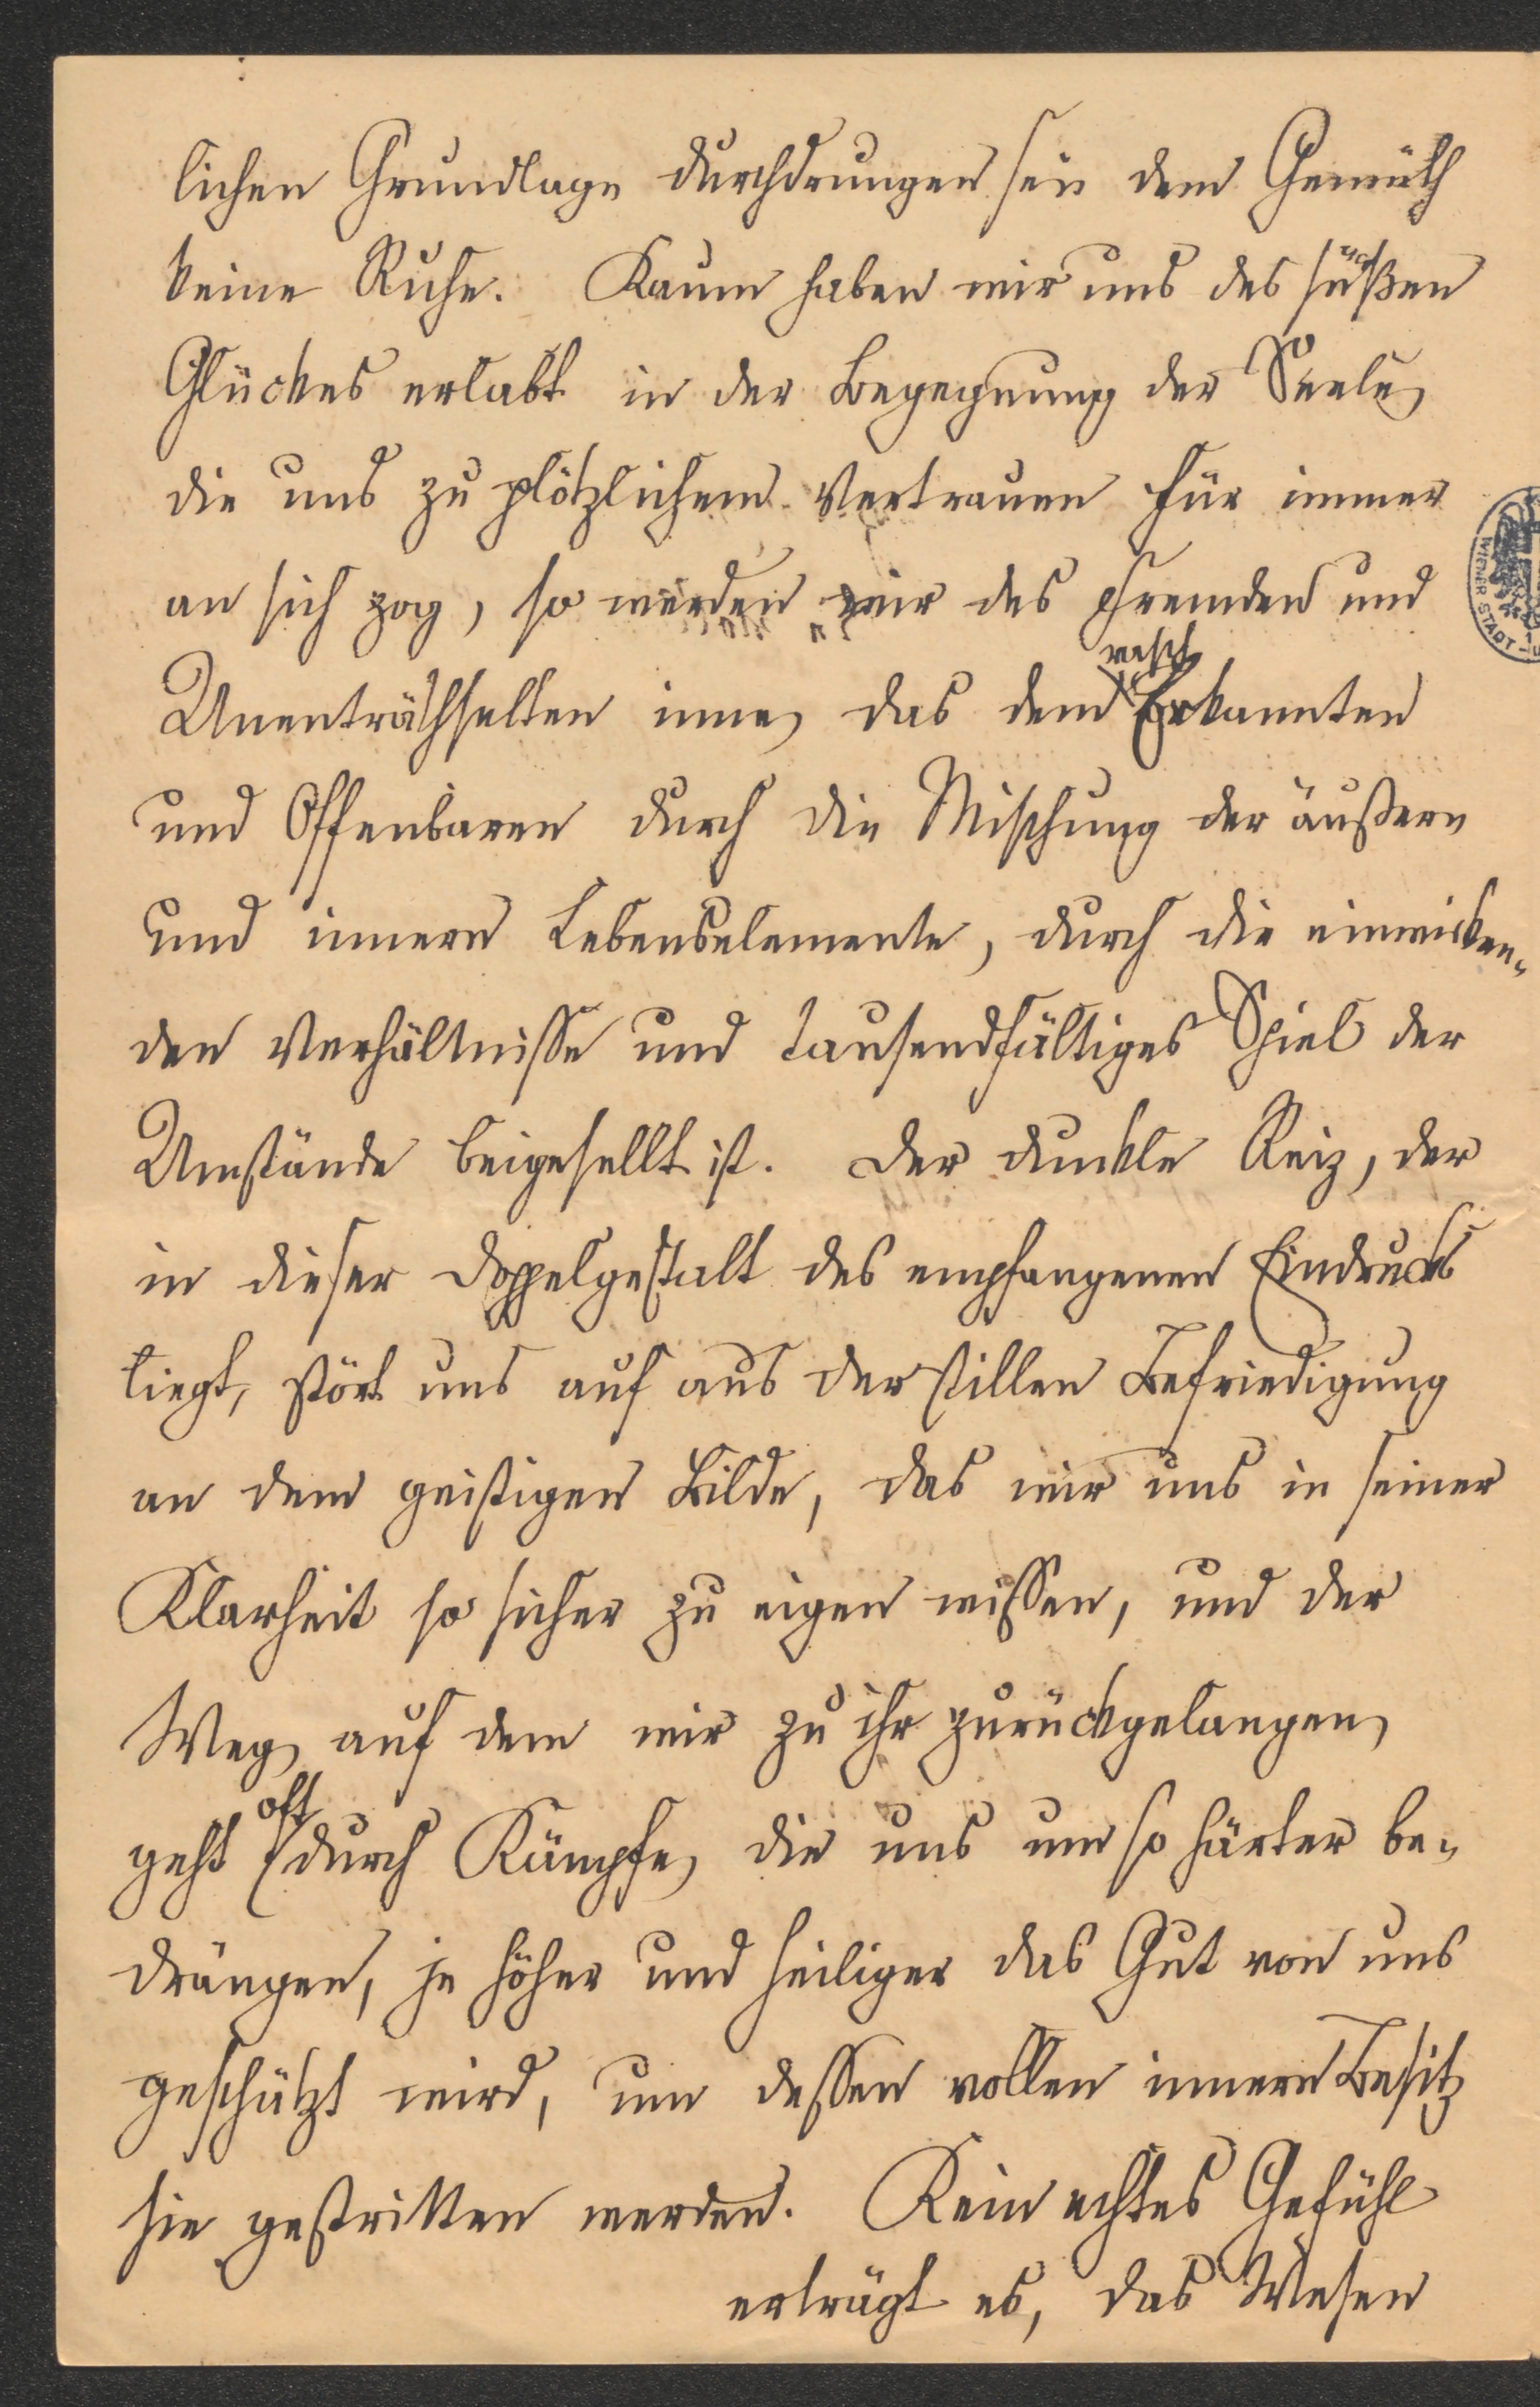 lichen Grundlage durchdrungen sein dem Gemüth
keine Ruhe. Kaum haben wir uns des süßen
Glückes erlabt in der Begegnung der Seele,
die uns zu plötzlichem Vertrauen für immer
an sich zog, so werden wir des Fremden und
rasch
Unenträthselten inne, das dem Erkannten
und Offenbaren durch die Mischung der äußern
und innern Lebenselemente, durch die einwirken-
den Verhältnisse und tausendfältiges Spiel der
Umstände beigesellt ist. Der dunkle Reiz, der
in dieser Doppelgestalt des empfangenen Eindrucks
liegt, stört uns auf aus der stillen Befriedigung
an dem geistigen Bilde, das wir uns in seiner
Klarheit so sicher zu eigen wissen, und der
Weg, auf dem wir zu ihr zurückgelangen,
oft
geht durch Kämpfe, die uns um so härter be-
drängen, je höher und heiliger das Gut von uns
geschätzt wird, um dessen vollen innern Besitz
sie gestritten werden. Kein echtes Gefühl
erträgt es, das Wesen
WIENER STADT-